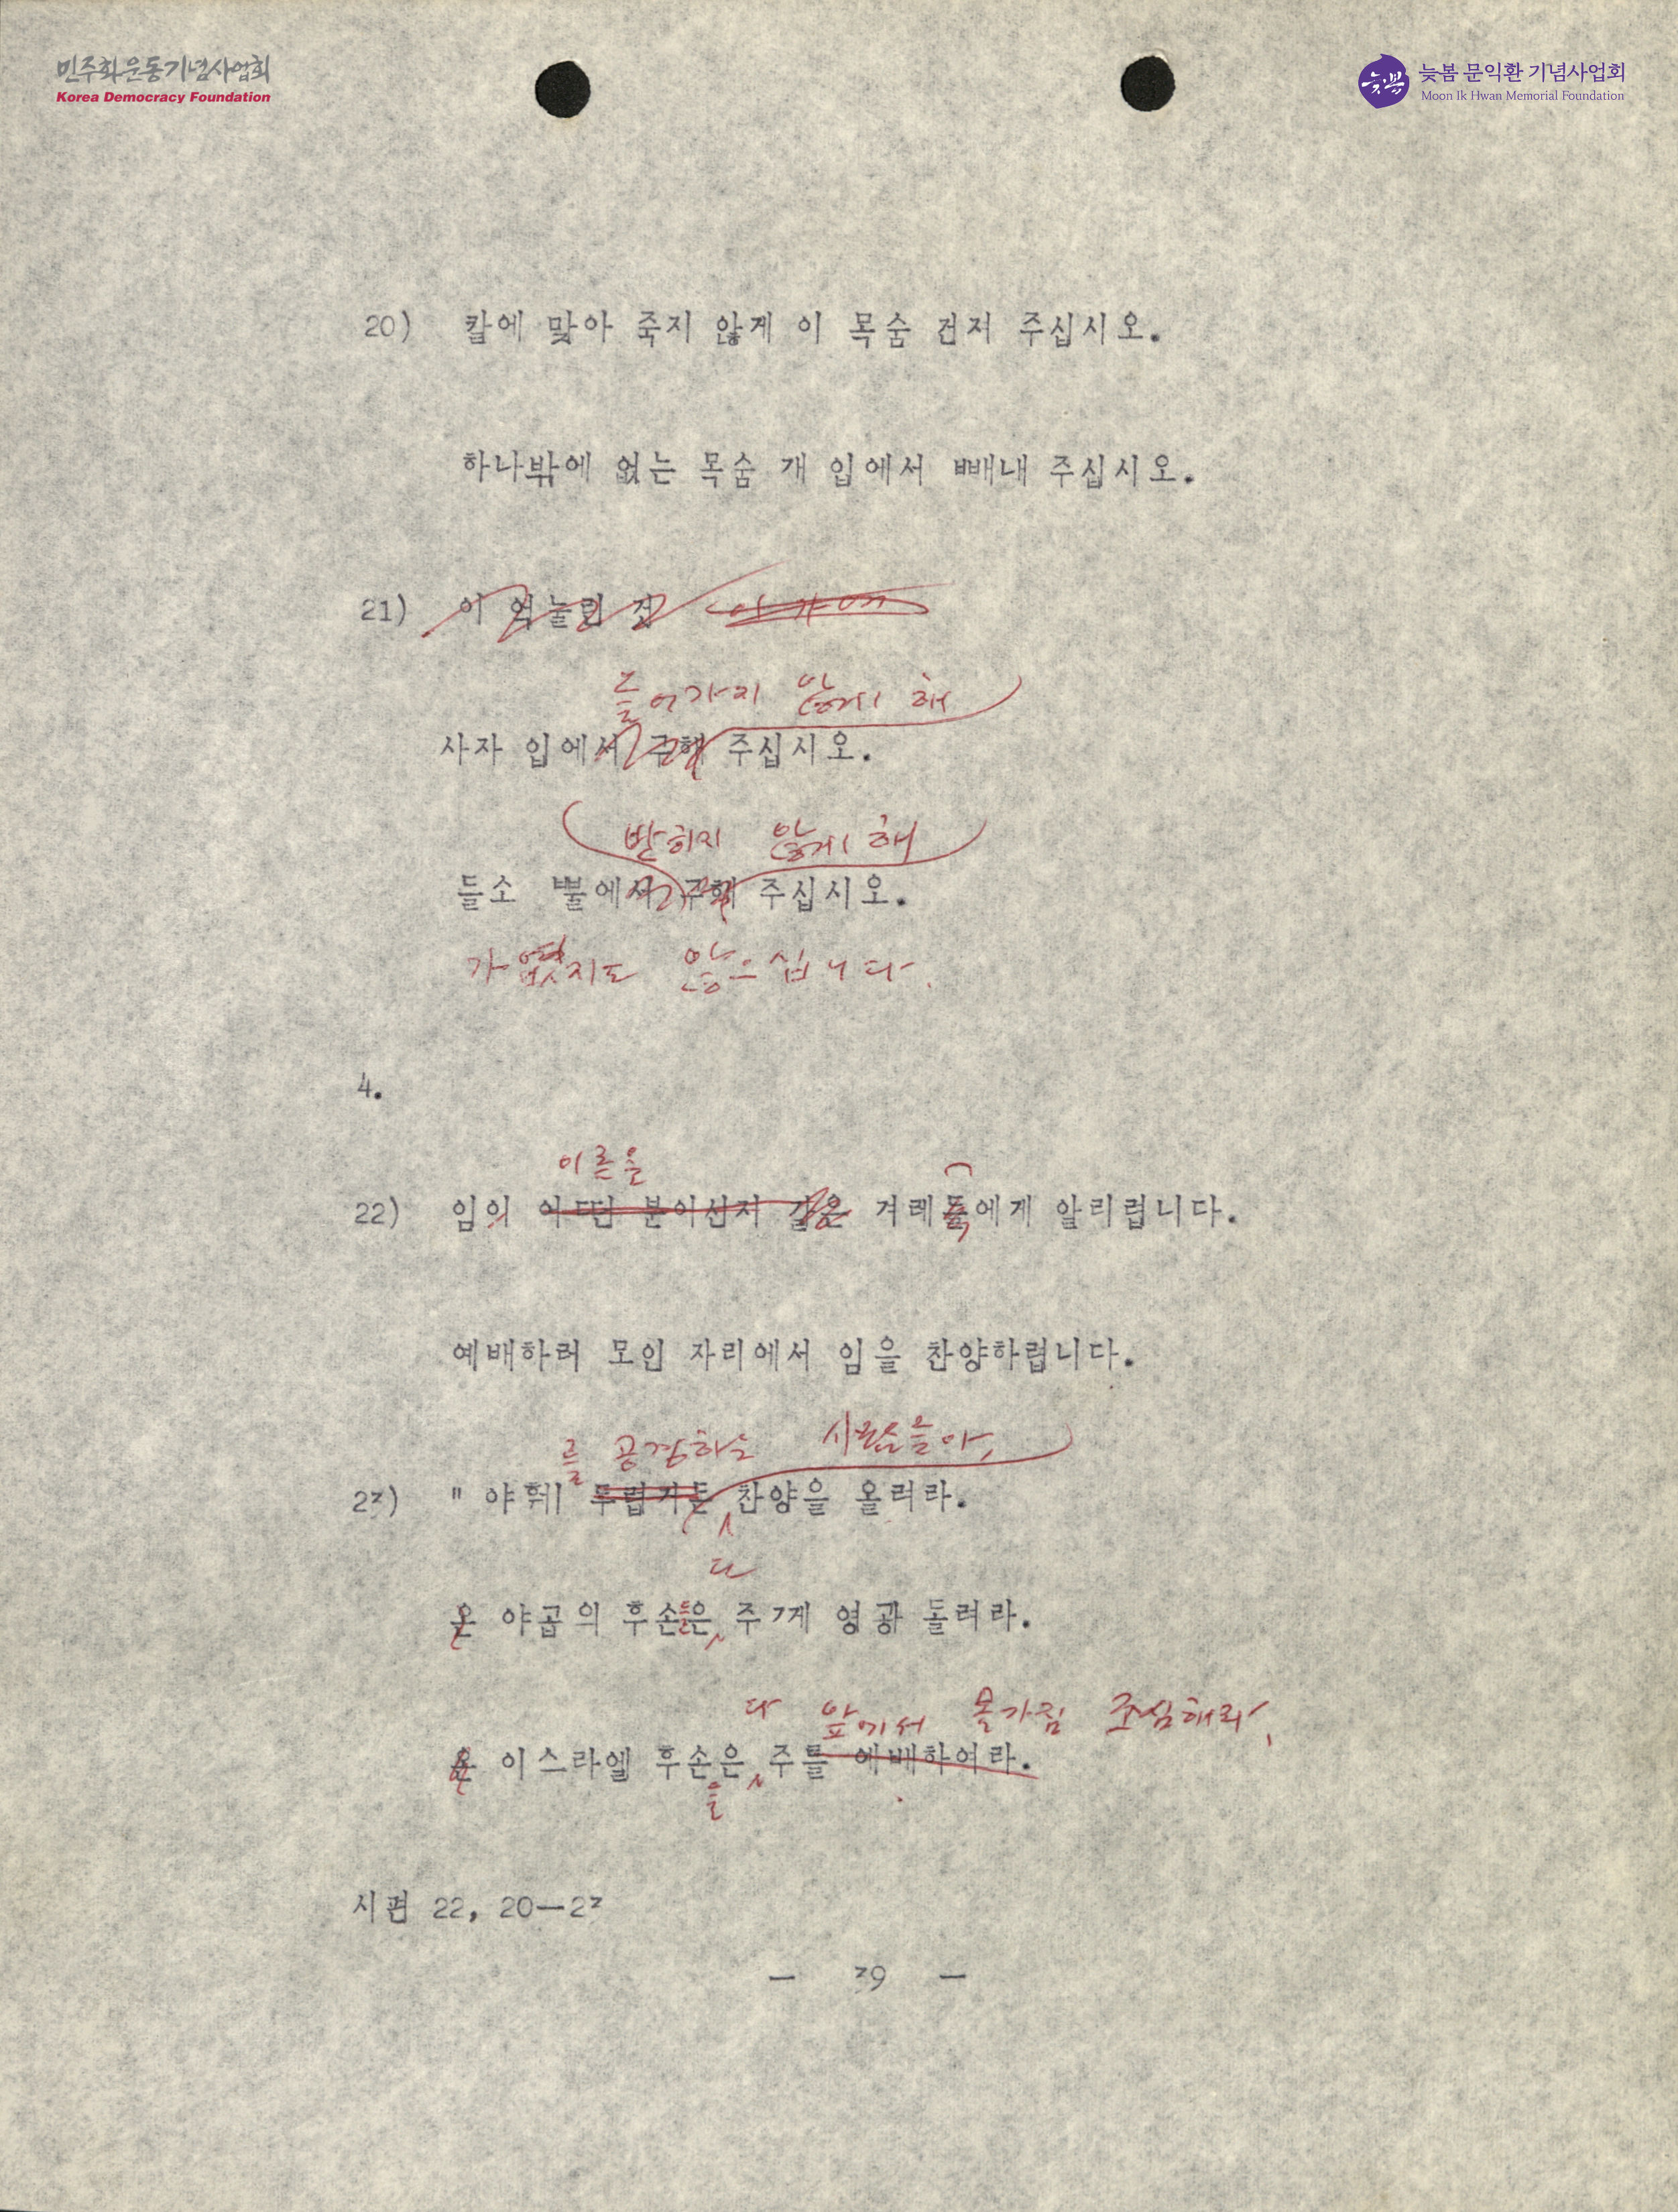 민주화운동기념사업회
Korea Democracy Foundation
늦봄
늦봄 문익환 기념사업회
Moon Ik Hwan Memorial Foundation
20) 칼에 맞아 죽지 않게 이 목숨 건저 주십시오.
하나밖에 없는 목숨 개 입에서 빼내 주십시오.
21) 이 억눌린
들어가지 않게 해
사자 입에서 구해 주십시오.
받히지 않게 해
들소 뿔에서 구해 주십시오.
가엾지도 않으십니다.
4.
이름을
22) 임의 어떤 분이신지 같은 겨레들에게 알리렵니다.
예배하러 모인 자리에서 임을 찬양하렵니다.
를 공경하는 사람들아,
23) " 야훼 두렵거든 찬양을 올려라.
다
온 야곱의 후손들은 주께 영광 돌려라.
다 앞에서 몸가짐 조심해라,
온 이스라엘 후손은 주를 예배하여라.
들
시편 22, 20—23
— 39 —